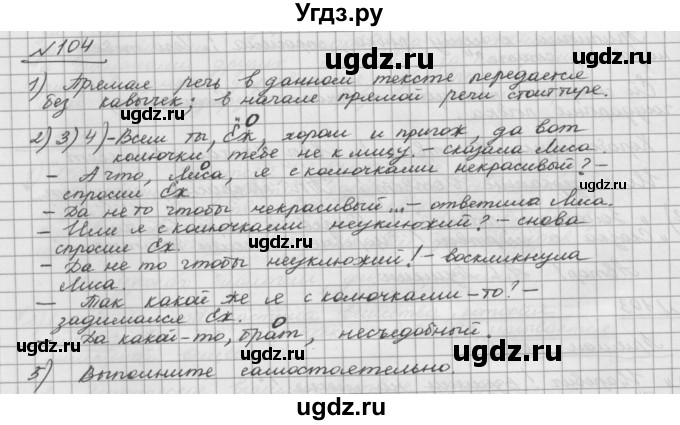 Угдз.ру
№104
1) Прямая речь в данном тексте передается
без кавычек; в начале прямой речи стоит тире.
2) 3) 4) - Всем ты, Ёж, хорош и пригож, да вот
колючки тебе не к лицу. - сказала Лиса.
- А что, Лиса, я с колючками некрасивый? -
спросил Ёж.
- Да не то чтобы некрасивый... - ответила Лиса.
- Или я с колючками неуклюжий? - снова
спросил Ёж.
- Да не то чтобы неуклюжий! - воскликнула
Лиса.
- Так какой же я с колючками-то? -
задумался Ёж.
- Да какой-то, брат, несъедобный.
5) Выполните самостоятельно.
ugdz.ru
ugdz.ru
ugdz.ru
ugdz.ru
ugdz.ru
ugdz.ru
ugdz.ru
ugdz.ru
ugdz.ru
ugdz.ru
ugdz.ru
ugdz.ru
ugdz.ru
ugdz.ru